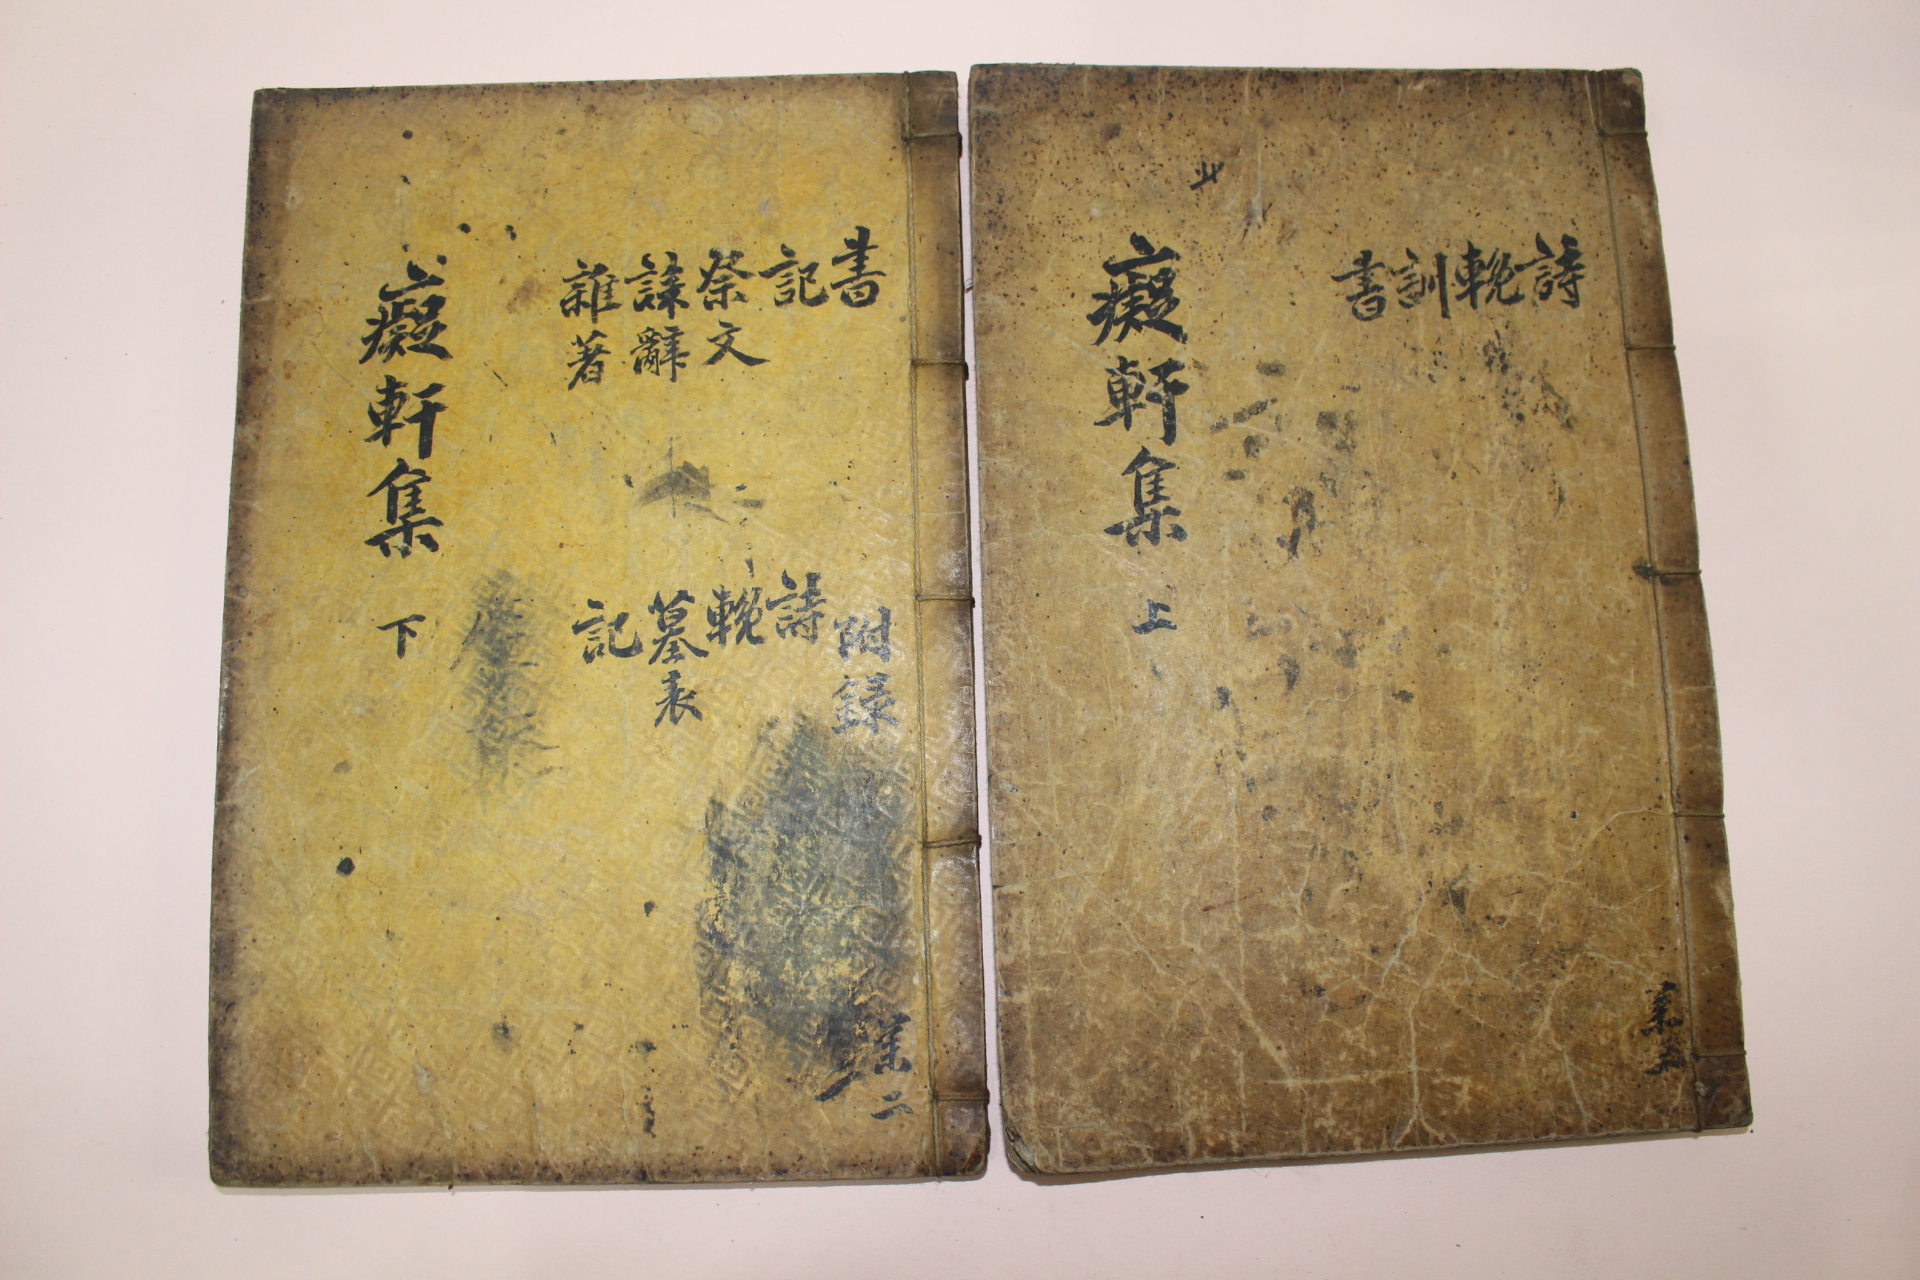 詩
輓
訓
書
癡軒集 上
書
記
祭文
誄辭
雜著
附錄
詩
輓
墓表
記
癡軒集 下